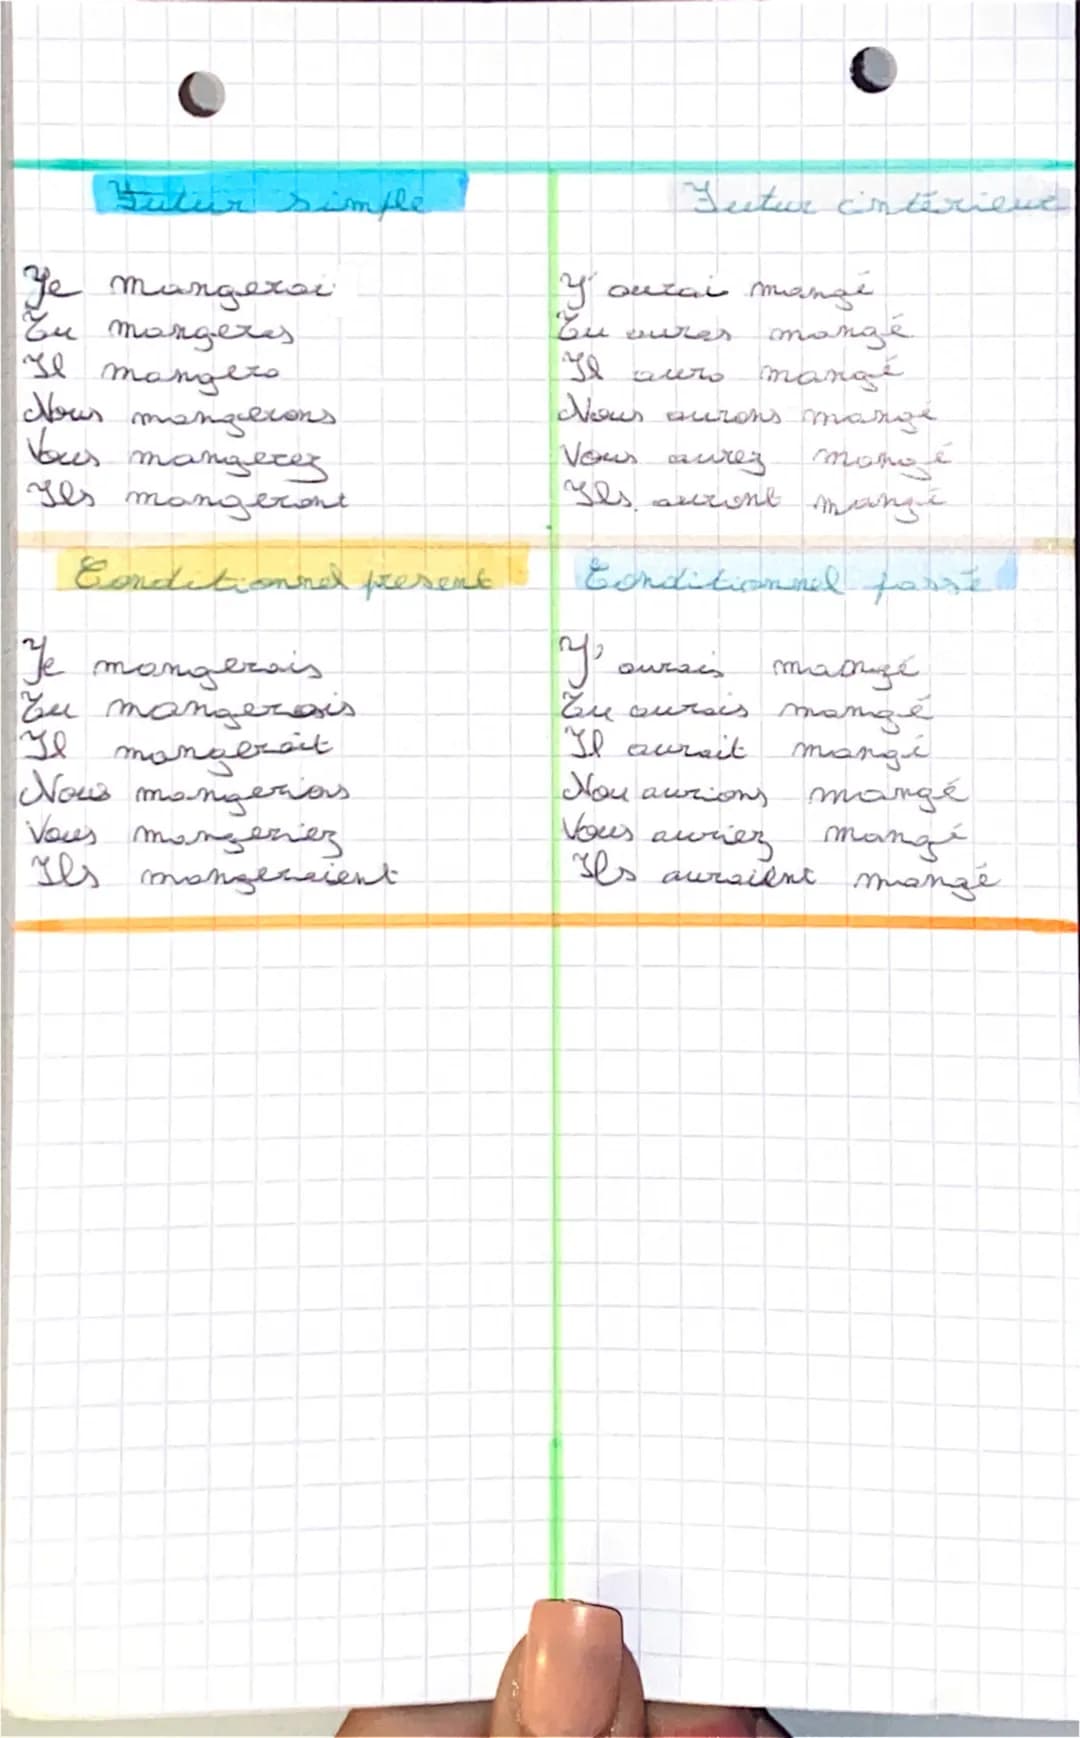 Futur simple
Je mangerai
Tu mangeras
Il mangera
Nous mangerons
Vous mangerez
Ils mangeront
Futur intérieur
J'aurai mangé
Tu auras mangé
Il aura mangé
Nous aurons mangé
Vous aurez mangé
Ils auront mangé
Conditionnel present
Je mangerais
Tu mangerais
Il mangerait
Nous mangerions
Vous mangeriez
Ils mangeraient
Conditionnel passé
J'aurais mangé
Tu aurais mangé
Il aurait mangé
Nou aurions mangé
Vous auriez mangé
Ils auraient mangé